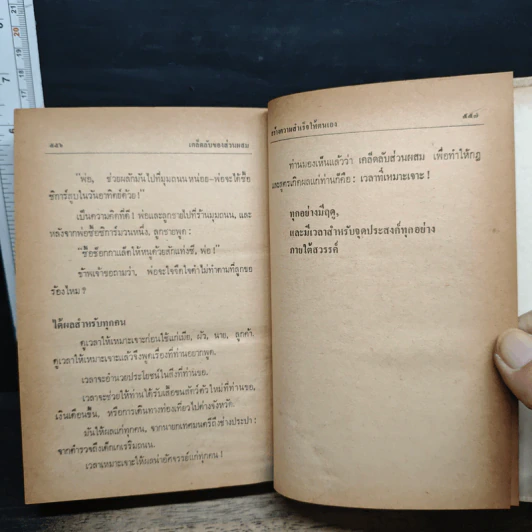 ๕๕๖
เคล็ดลับของส่วนผสม
"พ่อ, ช่วยผลักมันไปที่มุมถนนหน่อย-พ่อจะได้ซื้อ
ซิการ์สูบในวันอาทิตย์ด้วย!"
เป็นความคิดที่ดี! พ่อและลูกชายไปที่ร้านมุมถนน, และ
หลังจากพ่อซื้อซิการ์มวนหนึ่ง, ลูกชายพูด:
"ซื้อช็อกกาแล็ตให้หนูด้วยสักแท่งซี, พ่อ!"
ข้าพเจ้าขอถามว่า, พ่อจะใจจืดใจดำไม่ทำตามที่ลูกขอ
ร้องไหม?
ได้ผลสำหรับทุกคน
ดูเวลาให้เหมาะเจาะก่อนใช้แก่เมีย, ผัว, นาย, ลูกค้า.
ดูเวลาให้เหมาะเจาะแล้วจึงพูดเรื่องที่ท่านอยากพูด.
เวลาจะอำนวยประโยชน์ในสิ่งที่ท่านขอ.
เวลาจะช่วยให้ท่านได้รับเสื้อขนสัตว์ตัวใหม่ที่ท่านขอ,
เงินเดือนขึ้น, หรือการเดินทางท่องเที่ยวไปต่างจังหวัด.
มันให้ผลแก่ทุกคน, จากนายกเทศมนตรีถึงช่างประปา:
จากตำรวจถึงเด็กเกเรริมถนน.
เวลาเหมาะเจาะให้ผลน่าอัศจรรย์แก่ทุกคน!
สร้างความสำเร็จให้ตนเอง
๕๕๗
ท่านมองเห็นแล้วว่า เคล็ดลับส่วนผสม เพื่อทำให้กฎ
และสูตรเกิดผลแก่ท่านก็คือ: เวลาที่เหมาะเจาะ!
ทุกอย่างมีฤดู,
และมีเวลาสำหรับจุดประสงค์ทุกอย่าง
ภายใต้สวรรค์